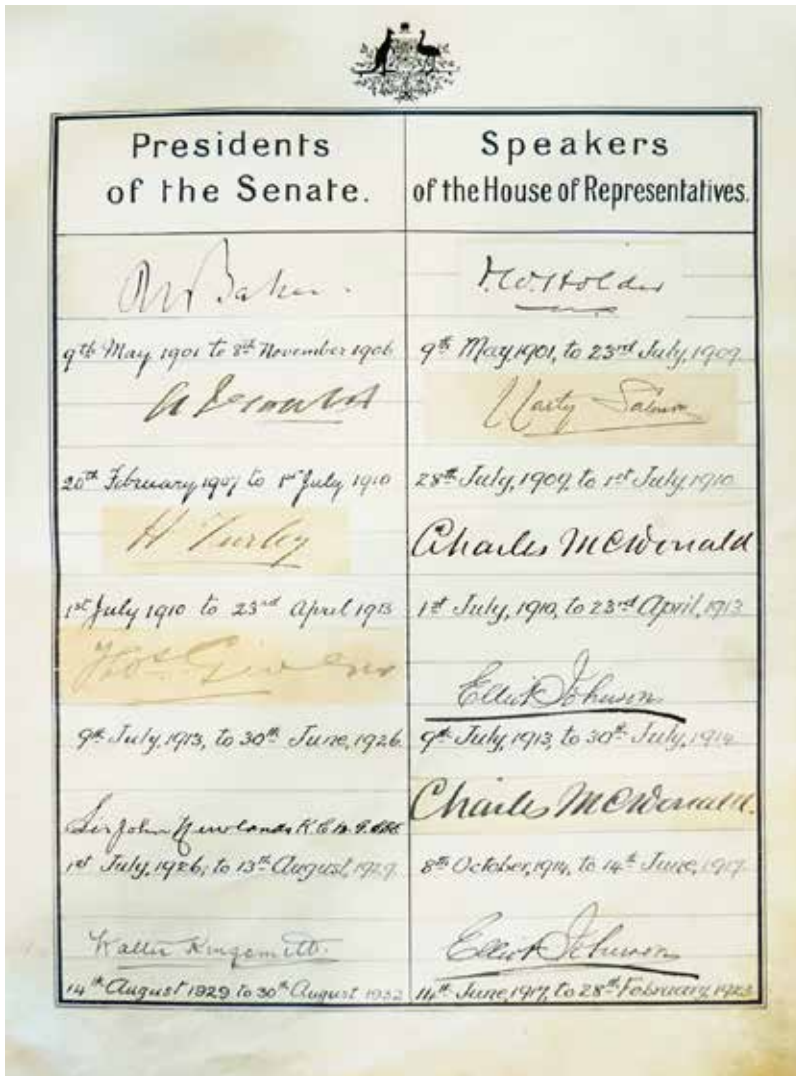 Presidents
of the Senate.
RW Baker.
9th May 1901 to 8th November 1906
A J Gould
20th February 1907 to 1st July 1910
H Turley
1st July 1910 to 23rd April 1913
Thos Givens
9th July, 1913, to 30th June, 1926.
Sir John Newlands K.C.M.G. CBE.
1st July, 1926, to 13th August, 1929
Walter Kingsmill.
14th August 1929 to 30th August 1932
Speakers
of the House of Representatives.
F.W. Holder
9th May, 1901, to 23rd July, 1909
Carty Salmon
28th July, 1909, to 1st July, 1910
Charles McDonald
1st July, 1910, to 23rd April, 1913
Elliot Johnson
9th July, 1913, to 30th July, 1914
Charles McDonald.
8th October, 1914, to 14th June, 1917
Elliot Johnson
14th June, 1917, to 28th February, 1923